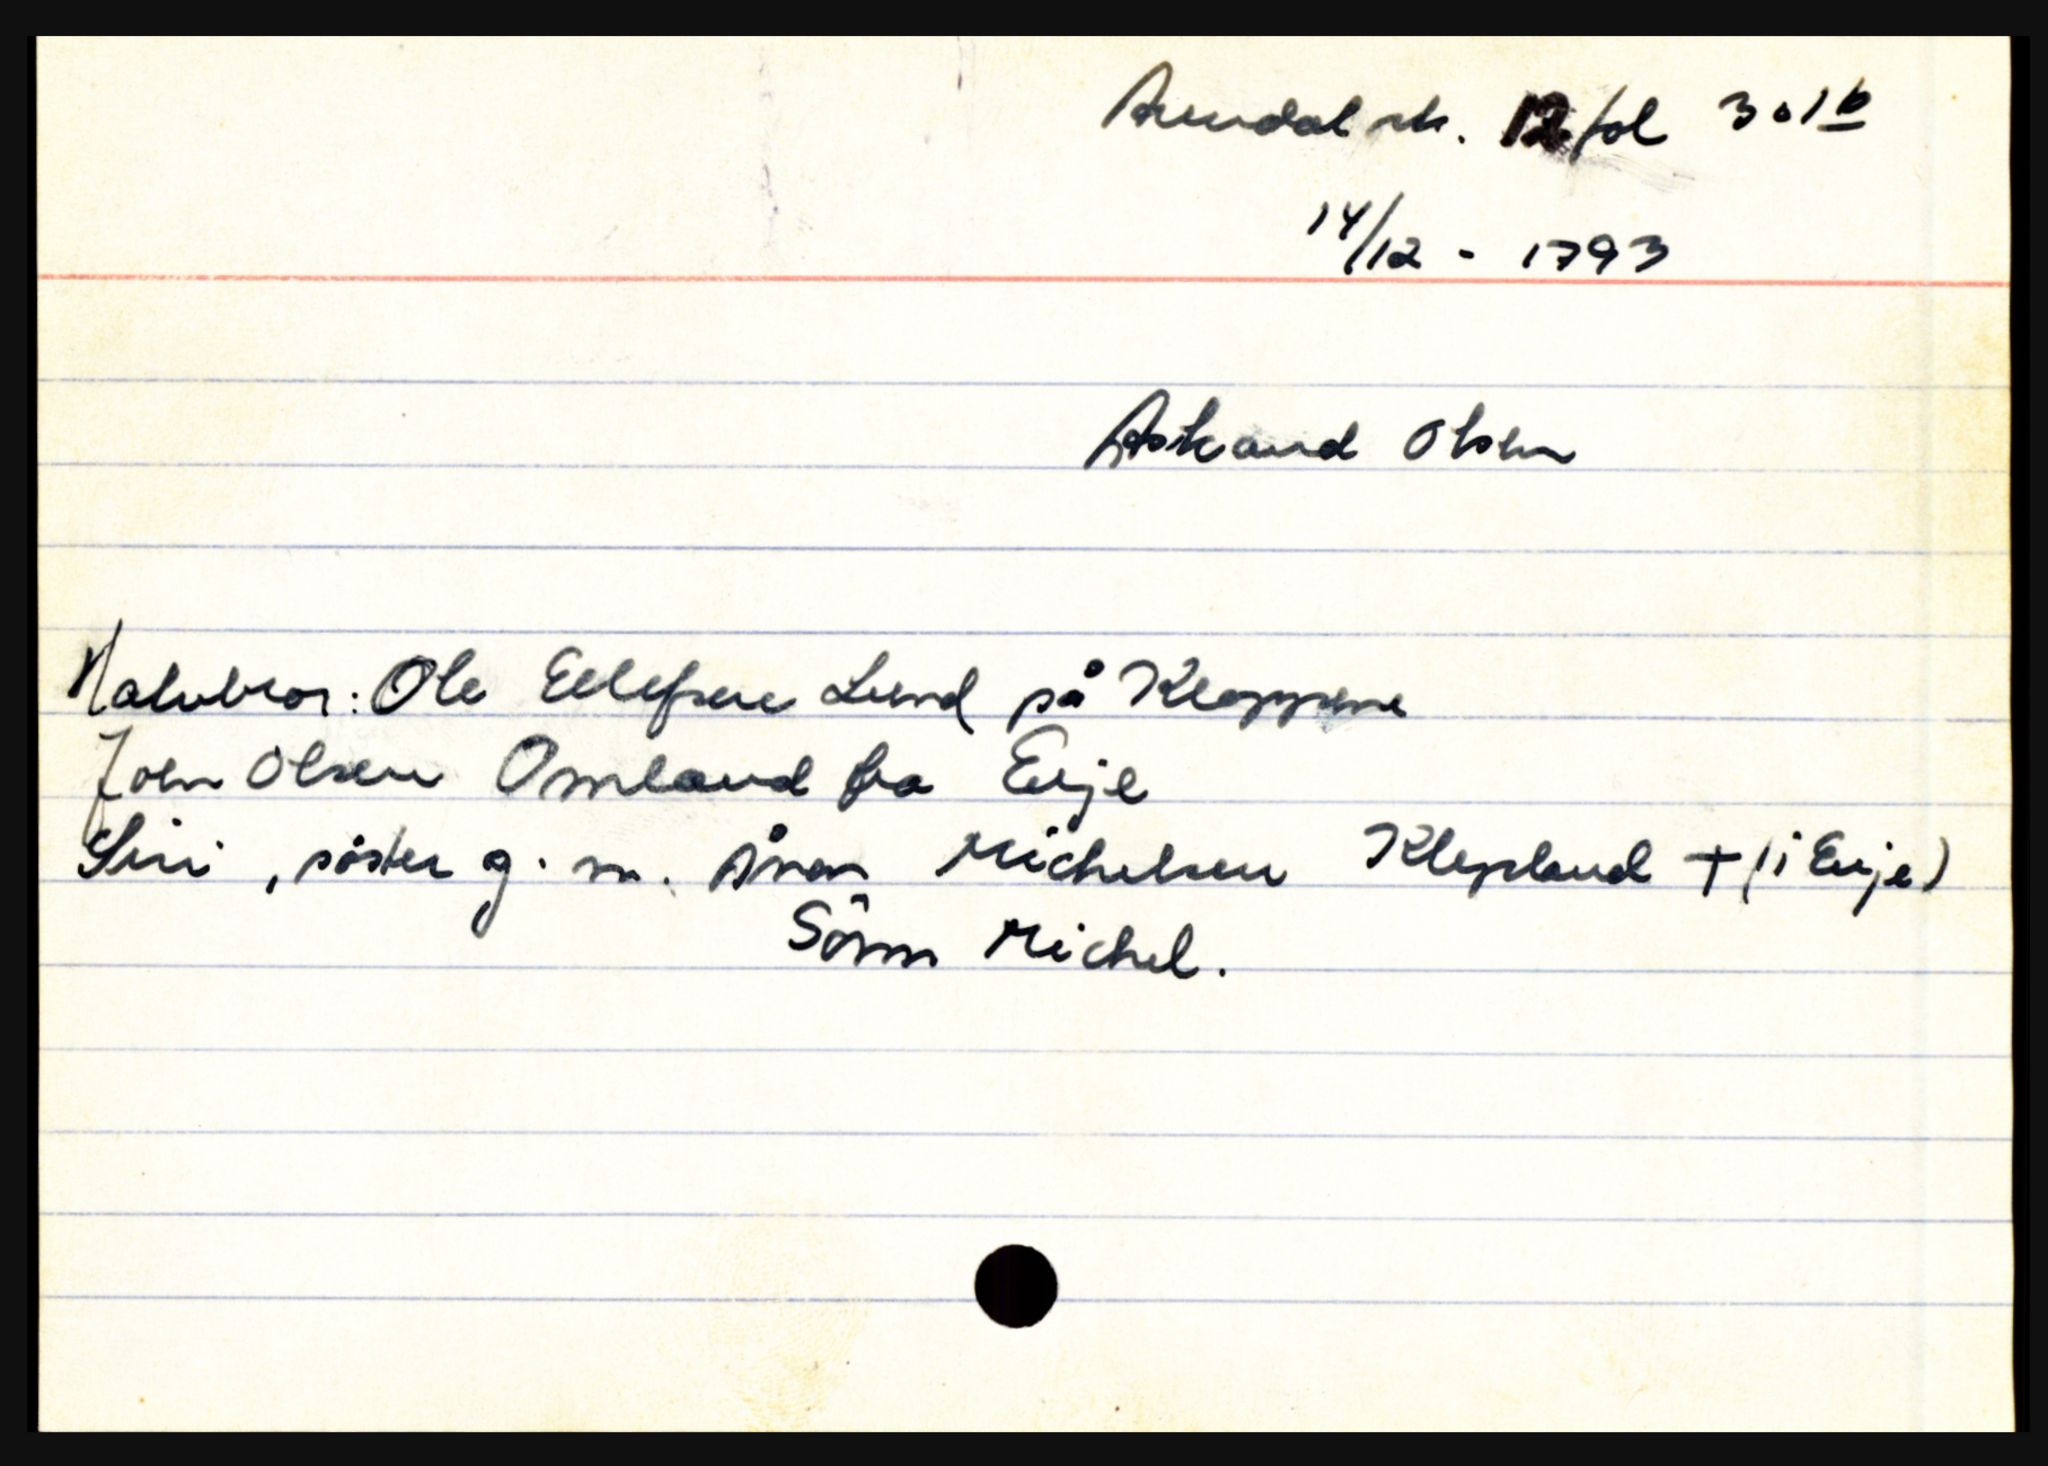 Arendal sk. 12 fol 301b
14/12 - 1793
Askaud Olsen
Halvbror: Ole Ellefsen Lund på Kloppene
John Olsen Omland fra Evje
Siri, söster g. m. Anon Michelsen Klepland + (i Evje)
Sönn Michel.